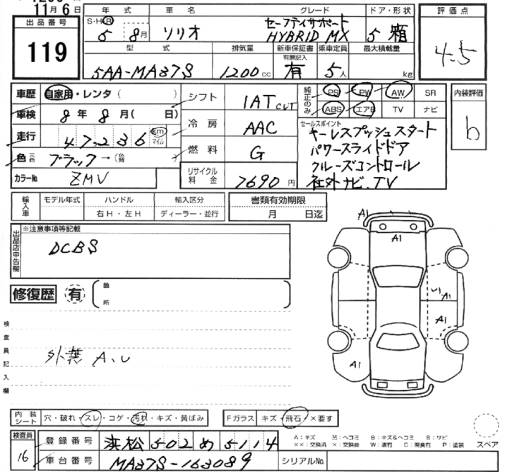 11月6日
出品番号
119
年式 車名 グレード ドア・形状
S・H・R 5年 8月 ソリオ セーフティサポート HYBRID MX 5 箱
型式 排気量 新車保証書 有無記入 乗車定員 最大積載量
5AA-MA37S 1200cc 有 5人 kg
評価点
4.5
車歴 自家用・レンタ( )
車検 8年8月 日
走行 47,236 Km マイル
色 (元色) ブラック→ (色替)
カラーNo ZMV
シフト IAT CVT
冷房 AAC
燃料 G
リサイクル料金 7690円
純正のみ PS PW AW SR
ABS エアB TV ナビ
セールスポイント
キーレスプッシュスタート
パワースライドドア
クルーズコントロール
社外ナビ.TV
内装評価
b
輸入車 モデル年式 ハンドル 輸入区分 書類有効期限
右H・左H ディーラー・並行 月 日迄
出品店申告欄
※注意事項等記載
DCBS
修復歴 有 箇所
検査員記入欄
外装 A,U
A1
A1
U1
A1
A1
内装シート 穴・破れ・スレ・コゲ・汚れ・キズ・黄ばみ
Fガラス キズ・飛石・×要す
スペア
検査員 16
登録番号 浜松 502 め 5114
車台番号 MA37S-163089
シリアルNo